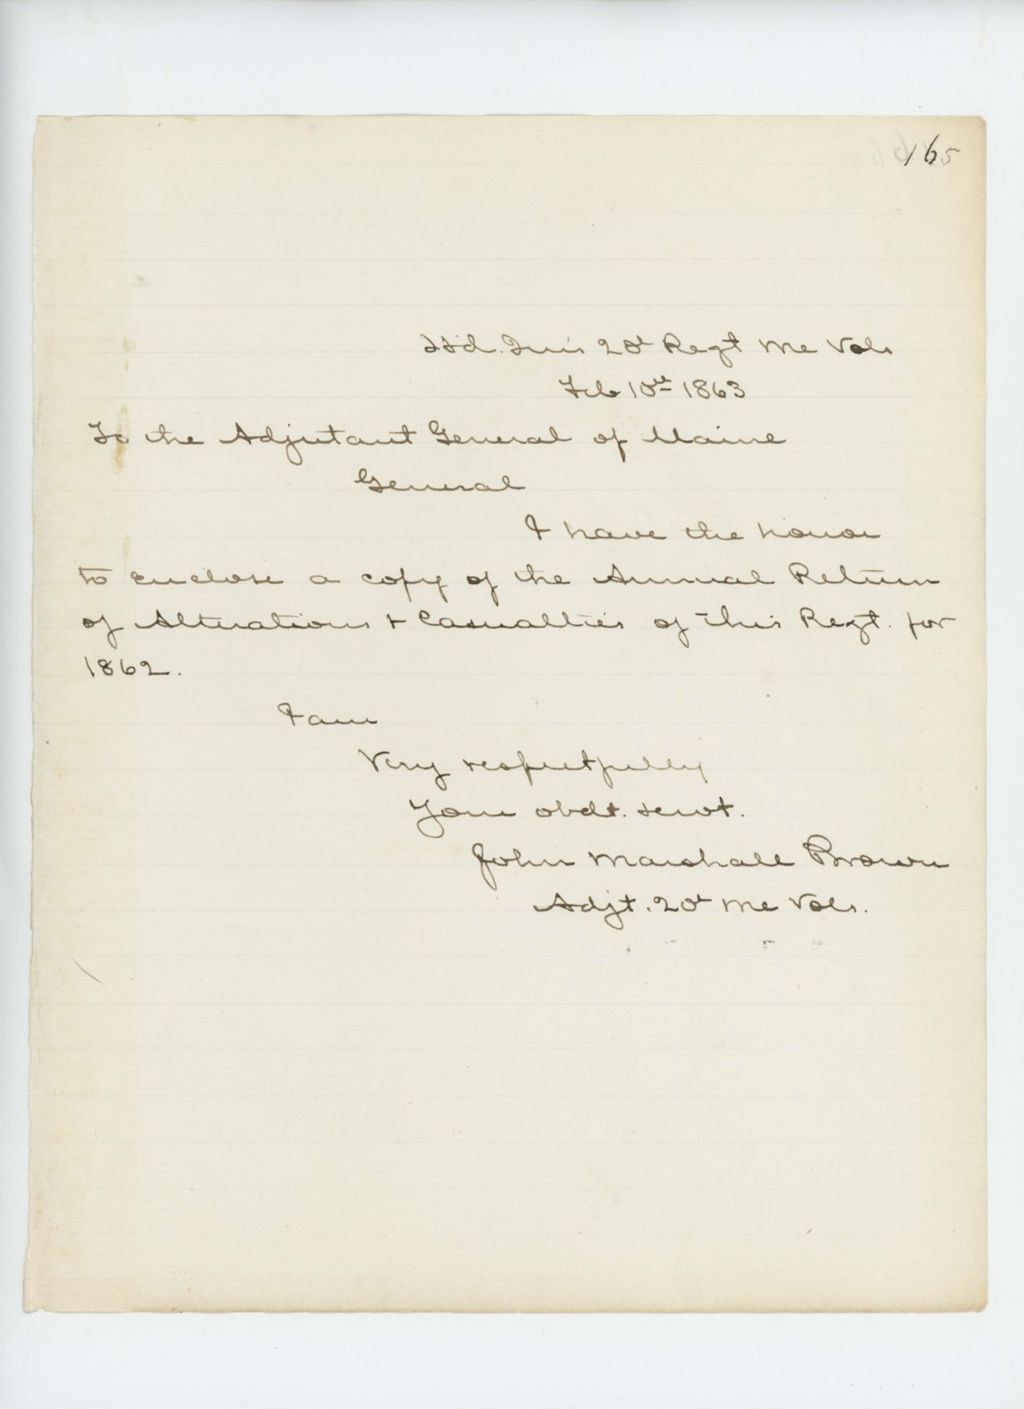 165
Hd. Qrs 20th Regt Me Vols
Feb 10th 1863
To the Adjutant General of Maine
General
I have the honor
to enclose a copy of the Annual Return
of Alterations & Casualties of this Regt. for
1862.
I am
Very respectfully
Your obdt. servt.
John Marshall Brown
Adjt. 20th Me Vols.